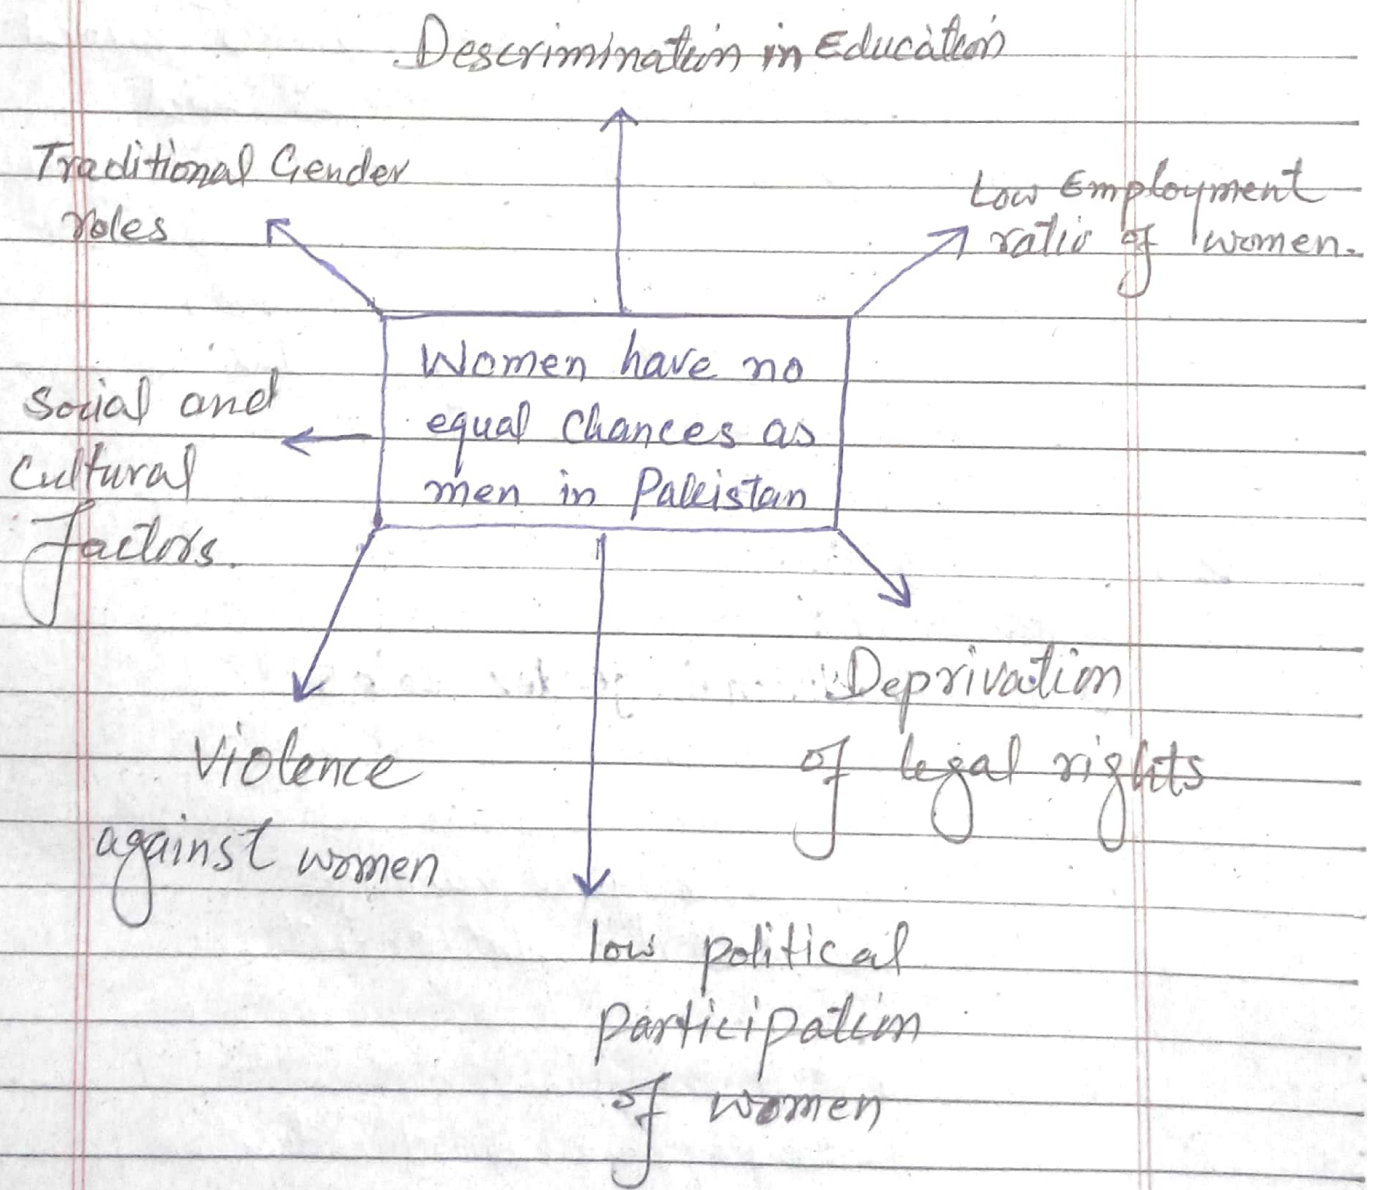 Descrimination in Education
Traditional Gender
roles
Low Employment
ratio of women.
Women have no
equal chances as
men in Pakistan
Social and
Cultural
factors.
Violence
against women
Deprivation
of legal rights
low political
participation
of women